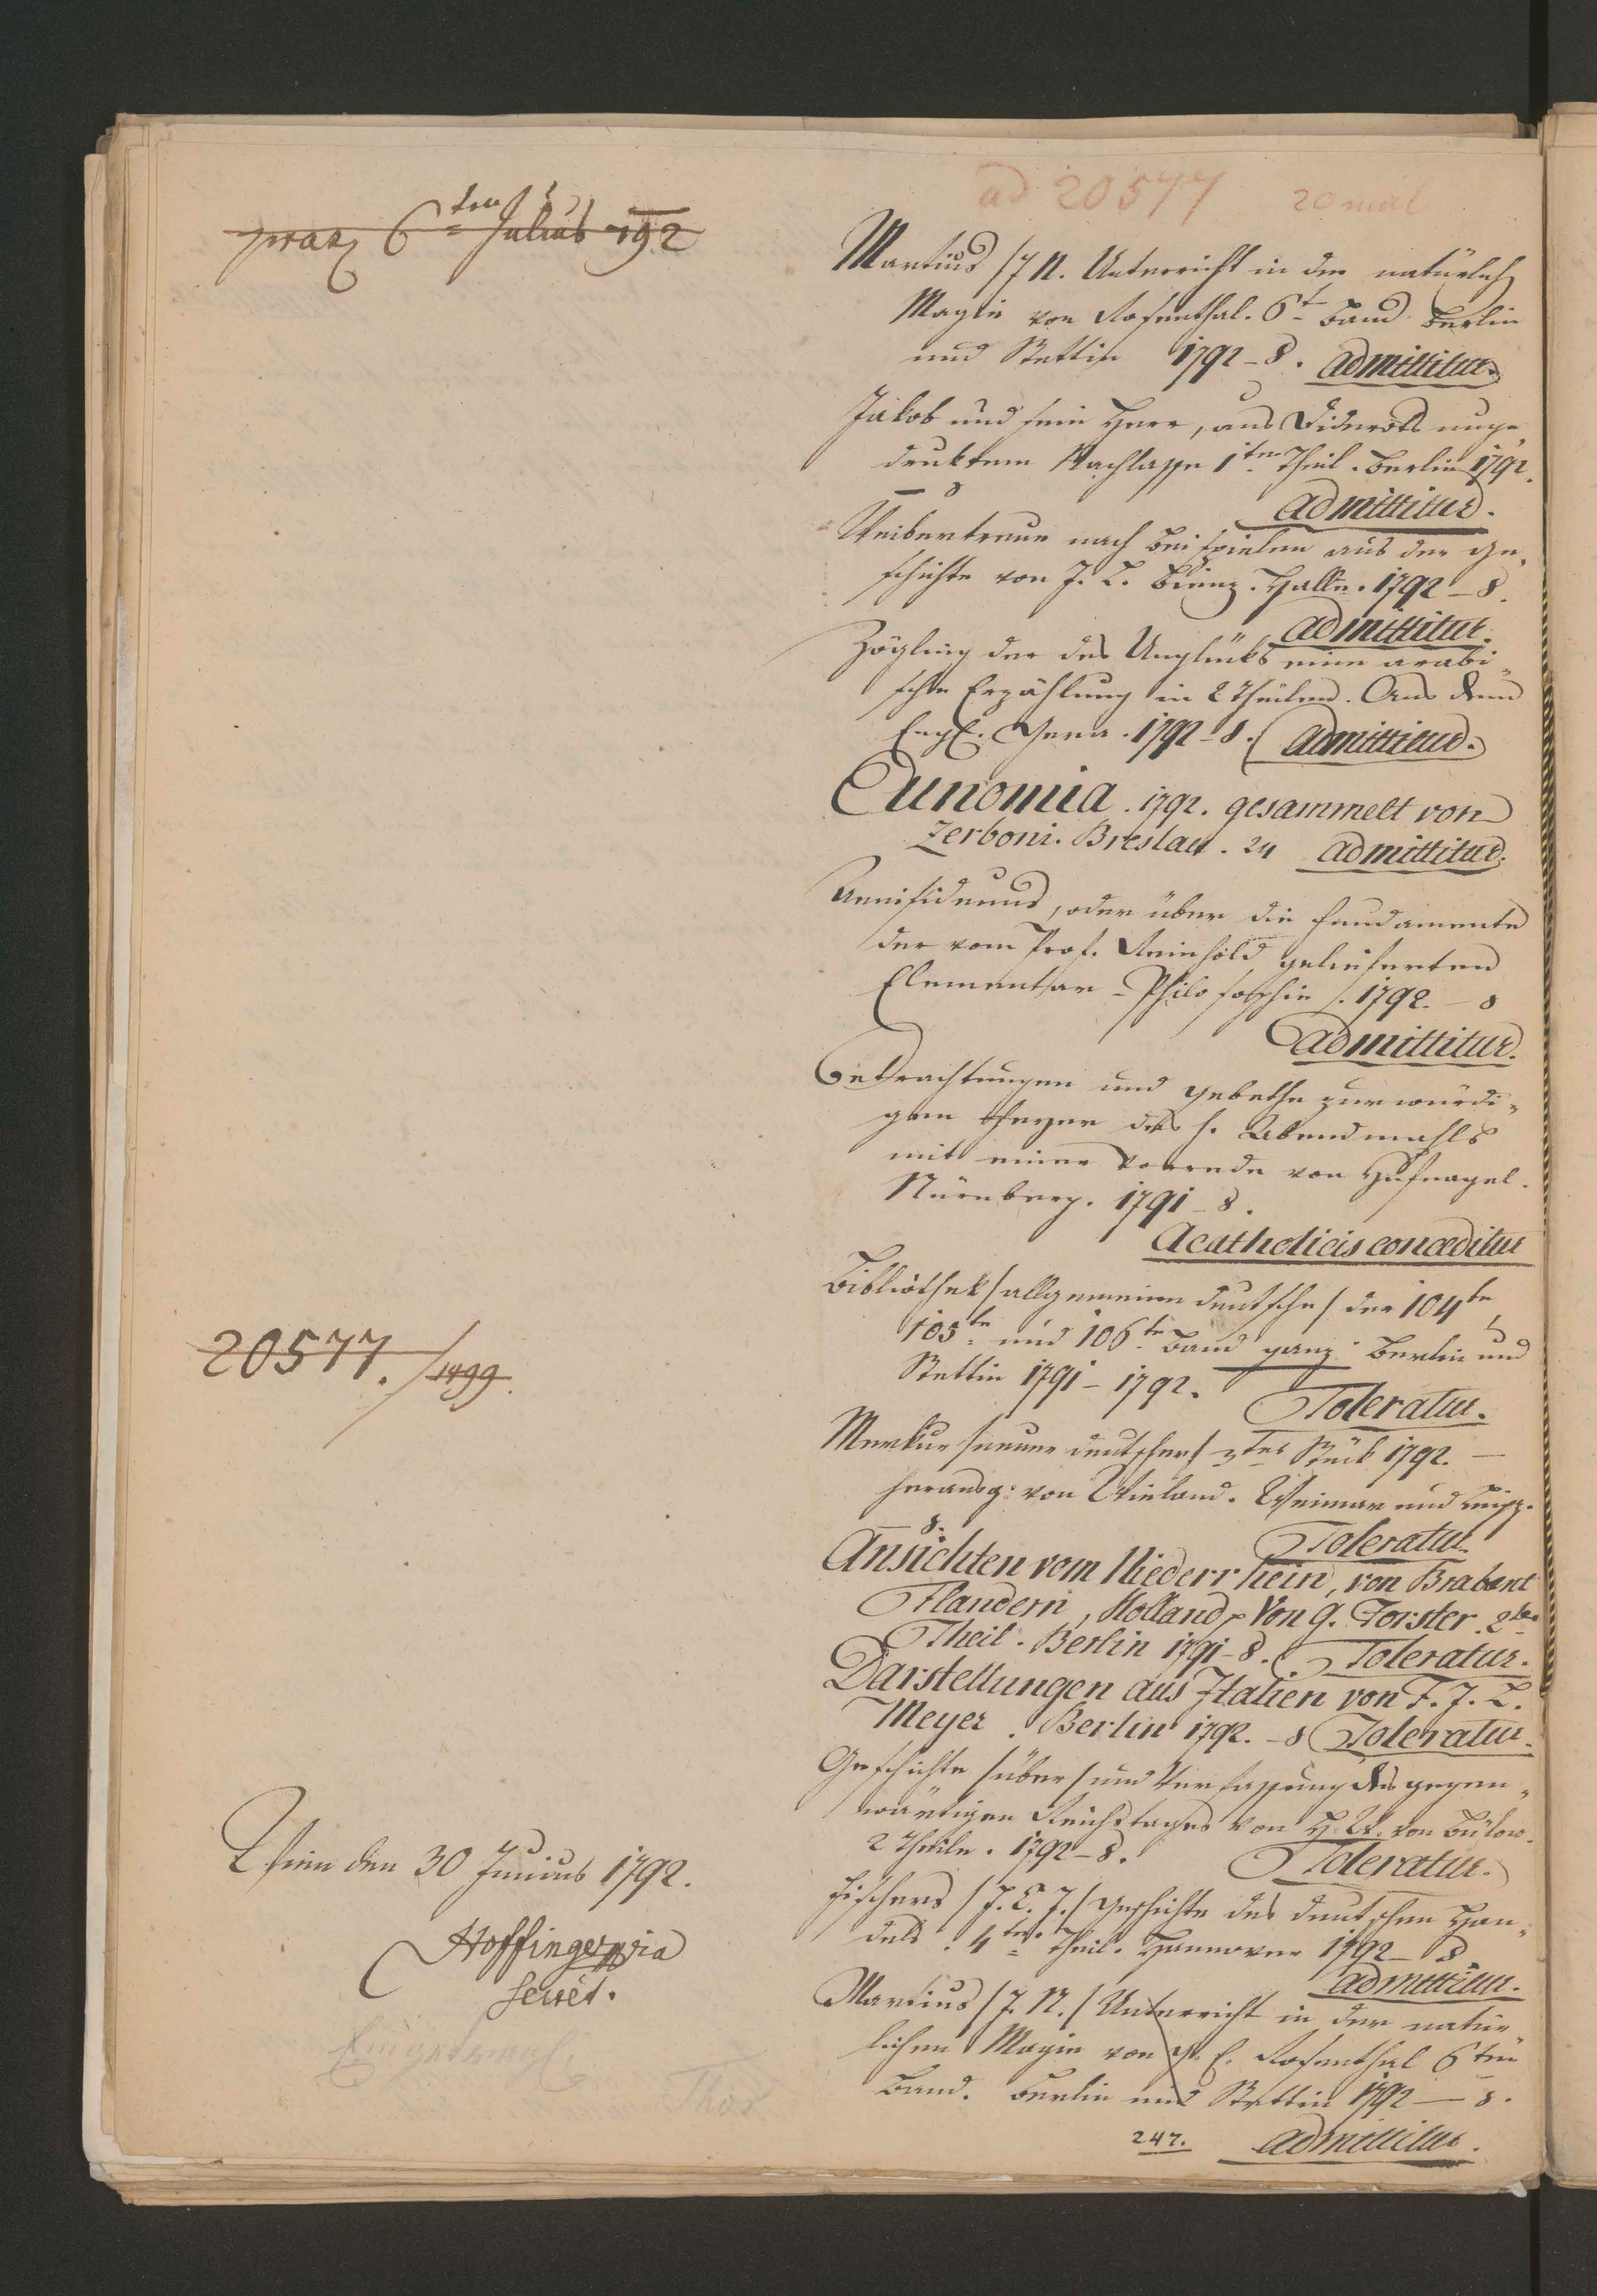 ad 20577 20 mal
praes 6ten Julius 792
Martius /J N. Unterricht in der natürlich
Magie von Rosenthal. 6t Band Berlin
und Stettin 1792 - 8. admittitur
Jakob und sein Herr, aus Diderots unge,
drucktem Nachlasse 1ter Theil. Berlin 1792.
8 admittitur.
Weibertreue nach Beispielen aus der Ge,
schichte von J. L. Halle. 1792 - 8.
admittitur.
Zögling der des Unglücks eine arabi,
sche Erzählung in 2 Theilen. Aus dem
Engl. Gera. 1792 - 8. admittitur.
Eunomia. 1792. gesammelt von
Zerboni. Breslau. 24 admittitur.
Aenesidemus, oder über die Fundamente
der vom Prof. Reinhold gelieferten
Elementar - Philosophie /. 1792. - 8
admittitur.
Betrachtungen und Gebethe zur würdi,
gen Feyer des h. Abendmahls
mit einer Vorrede von Hufnagel.
Nürnberg. 1791 - 8.
Acatholicis conceditur
Bibliothek / allgemeine deutsche / der 104te
105te und 106te Band ganz Berlin und
Stettin 1791 - 1792. Toleratur.
20577. /1499.
Merkur / neuer deutscher / Stück 1792. -
herausg: von Wieland. Weimar und Leipz.
8. Toleratur
Ansichten vom Niederrhein, von Brabant
Flandern, Holland Von G. Forster. 2ter
Theil. Berlin 1791 - 8. Toleratur.
Darstellungen aus Italien von F. J. L.
Meyer. Berlin 1792. - 8 Toleratur.
Geschichte / über / und Verfassung des gegen,
wärtigen Reichstages von H. W. von Bülow.
2 Theile. 1792 - 8. Toleratur.
Wien den 30 Junius 1792.
Fischers / J. C. J. / Geschichte des deutschen Han,
dels. 4ter Theil. Hannover 1792 - 8
admittitur.
Hoffinger mpria
Secret.
Martius / J. N. / Unterricht in der natür
lichen Magie von G. E. Rosenthal 6ter
Band. Berlin und Stettin 1792 - 8.
247. admittitur.
Thor